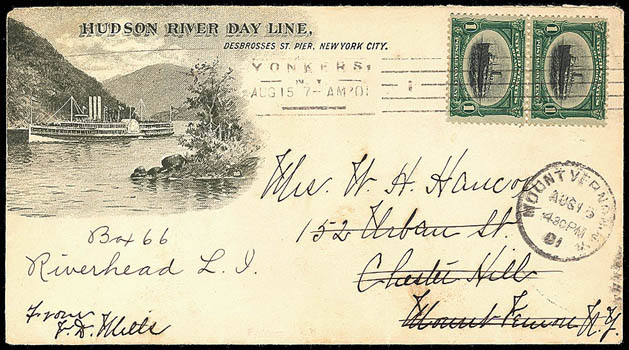 HUDSON RIVER DAY LINE,
DESBROSSES ST. PIER, NEW YORK CITY.
YONKERS,
N.Y.
AUG 15 7-AM '01
1
1
1
1
1
MOUNT VERNON
AUG 15
4-30PM
01
Mrs. W. H. Hancox
152 Urban St.
Chester Hill
Mount Vernon N.Y.
Box 66
Riverhead L. I.
From
F. D. Mills